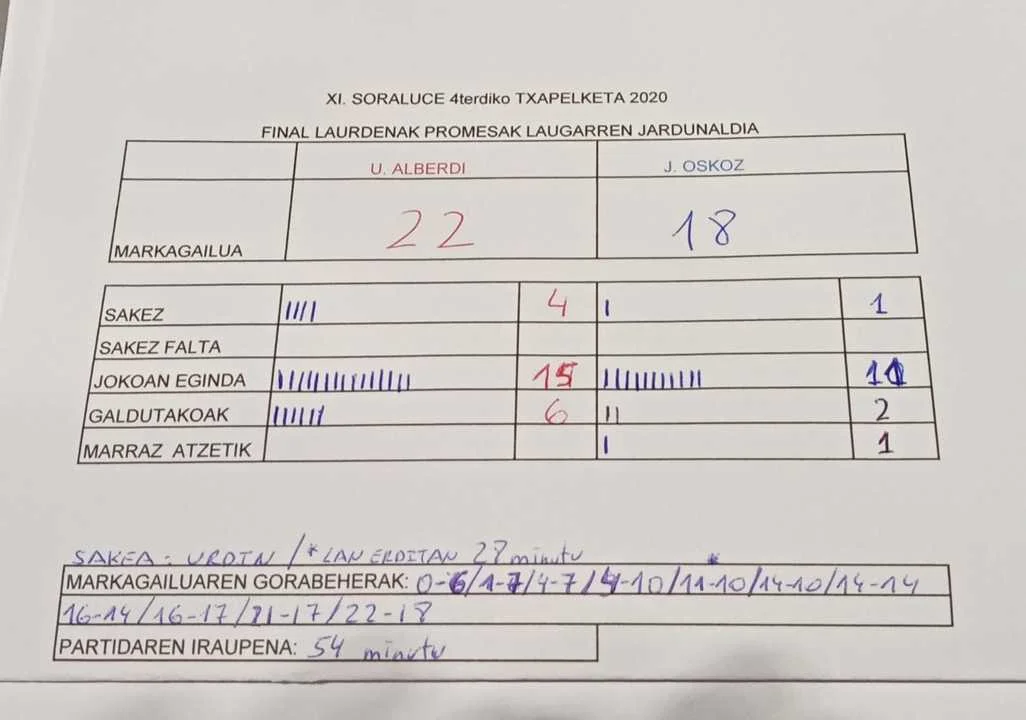 XI. SORALUCE 4terdiko TXAPELKETA 2020
FINAL LAURDENAK PROMESAK LAUGARREN JARDUNALDIA
U. ALBERDI J. OSKOZ
MARKAGAILUA 22 18
SAKEZ 4 1
SAKEZ FALTA
JOKOAN EGINDA 15 11
GALDUTAKOAK 6 2
MARRAZ ATZETIK 1
SAKEA: URDIN /* LAN ERDITAN 27 minutu
*
MARKAGAILUAREN GORABEHERAK: 0-6/1-7/4-7/4-10/11-10/14-10/14-14
16-14/16-17/21-17/22-18
PARTIDAREN IRAUPENA: 54 minutu